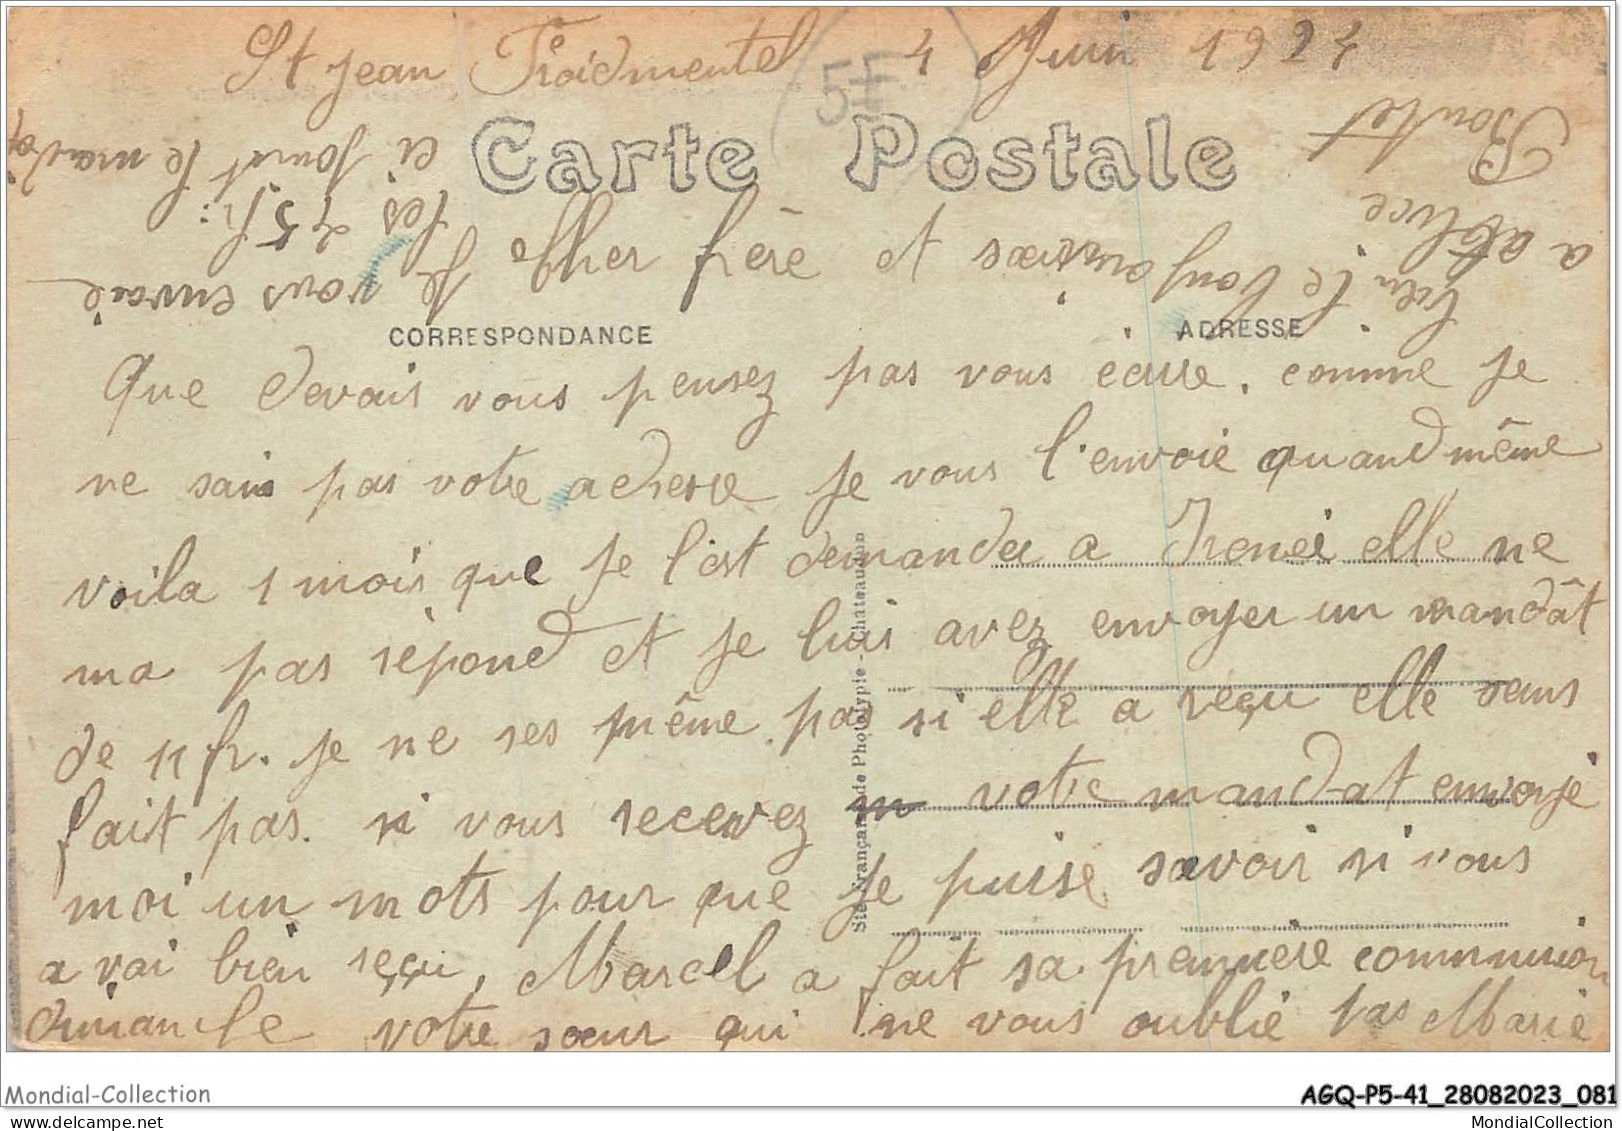 St Jean Froidmentel 4 Juin 1924
5F
Carte Postale
Cher frère et sœur
CORRESPONDANCE
ADRESSE
Que devais vous pensez pas vous écrire. comme je
ne sais pas votre adresse je vous l'envoie quand même
voila 1 mois que je l'est demander a Irénei elle ne
ma pas répond et je lui avez envoyer un mandât
de 11 fr. je ne ses même pas si elle a reçu elle vous
fait pas. si vous recevez votre mandat envoyé
moi un mots pour que je puise savoir si vous
avai bien reçu, Marcel a fait sa première communion
dimanche votre sœur qui ne vous oublie pas Marie
Je vous envoie
les 25 fr:
ci joint le mandat
bien le bonjour
a
Boutet
Sté Française de Phototypie - Châteaudun
Mondial-Collection
AGQ-P5-41_28082023_081
www.delcampe.net
MondialCollection